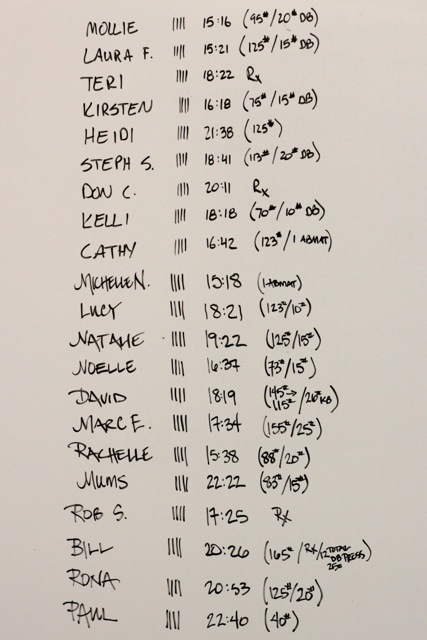 MOLLIE |||| 15:16 (95#/20# DB)
LAURA F. |||| 15:21 (125#/15# DB)
TERI |||| 18:22 Rx
KIRSTEN |||| 16:18 (75#/15# DB)
HEIDI |||| 21:38 (125#)
STEPH S. |||| 18:41 (113#/20# DB)
DON C. |||| 20:11 Rx
KELLI |||| 18:18 (70#/10# DB)
CATHY |||| 16:42 (123#/1 ABMAT)
MICHELLE N. |||| 15:18 (1 ABMAT)
LUCY |||| 18:21 (123#/10#)
NATALIE |||| 19:22 (125#/15#)
NOELLE |||| 16:37 (73#/15#)
DAVID |||| 18:19 (145#→115#/26# KB)
MARC E. |||| 17:34 (155#/25#)
RACHELLE |||| 15:38 (88#/20#)
MUMS |||| 22:22 (83#/15#)
ROB S. |||| 17:25 Rx
BILL |||| 20:26 (165#/RX/12 TOTAL DB PRESS 25#)
RONA |||| 20:53 (125#/20#)
PAUL |||| 22:40 (40#)